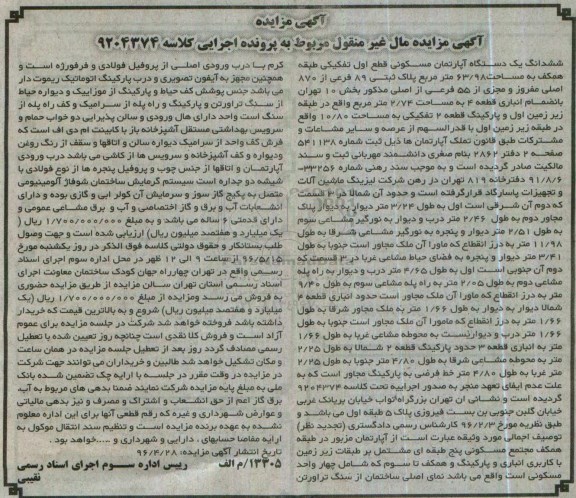 آگهی مزایده
آگهی مزایده مال غیر منقول مربوط به پرونده اجرایی کلاسه ۹۲۰۴۳۷۴
ششدانگ یک دستگاه آپارتمان مسکونی قطع اول تفکیکی طبقه
همکف به مساحت ۶۳/۹۸ متر مربع پلاک ثبتی ۸۹ فرعی از ۸۷۰
اصلی مفروز و مجزی از ۵۵ فرعی از اصلی مذکور بخش ۱۰ تهران
بانضمام انباری قطعه ۴ به مساحت ۲/۷۴ متر مربع واقع در طبقه
زیر زمین اول و پارکینگ قطعه ۲ تفکیکی به مساحت ۱۰/۸۰ واقع
در طبقه زیر زمین اول با قدرالسهم از عرصه و سایر مشاعات و
مشترکات طبق قانون تملک آپارتمان ها ذیل ثبت شماره ۵۴۱۱۳۸
صفحه ۲ دفتر ۲۸۶۲ بنام صغری دانشمند مهربانی ثبت و سند
مالکیت صادر گردیده است و به موجب سند رهنی شماره ۳۳۲۵۶-
۹۱/۸/۶ دفترخانه ۸۱۹ تهران در رهن شرکت لیزینگ ماشین آلات
و تجهیزات پاسارگاد قرارگرفته است و حدود آن شمالا در ۳ قسمت
که دوم آن شرقی است اول به طول ۳/۲۴ متر دیوار به دیوار پلاک
مجاور دوم به طول ۲/۴۶ متر درب و دیوار به نورگیر مشاعی سوم
به طول ۲/۵۱ متر دیوار و پنجره به نورگیر مشاعی شرقا به طول
۱۱/۹۸ متر به درز انقطاع که ماورا آن ملک مجاور است جنوبا به طول
۳/۴۱ متر دیوار و پنجره به فضای حیاط مشاعی غربا در ۳ قسمت که
دوم آن جنوبی است اول به طول ۴/۶۵ متر درب و دیوار به راه پله
مشاعی دوم به طول ۲/۰۵ متر به راه پله مشاعی سوم به طول ۹/۴۰
متر به درز انقطاع که ماورا آن ملک مجاور است حدود انباری قطعه ۴
شمالا دیوار به دیوار به طول ۱/۶۶ متر به ملک مجاور شرقا به طول
۱/۶۶ متر به درز انقطاع که ماورا آن ملک مجاور است جنوبا به طول
۱/۶۶ متر درب و دیواریست به محوطه مشاعی غربا به طول ۱/۶۶
متر به انباری قطعه ۳ حدود پارکینگ قطعه ۲ شمالا به طول ۲/۲۵
متر به محوطه مشاعی شرقا به طول ۴/۸۰ متر جنوبا به طول ۲/۲۵
متر غربا به طول ۴/۸۰ متر خط فرضی به پارکینگ مجاور است که به
علت عدم ایفای تعهد منجر به صدور اجراییه تحت کلاسه ۹۲۰۴۳۷۴
گردیده است و نشانی آن تهران بزرگراه نواب خیابان بریانک غربی
خیابان گلبن جنوبی بن بست فیروزی پلاک ۵ طبقه اول می باشد و
طبق نظریه مورخ ۹۶/۲/۳ کارشناس رسمی دادگستری (تجدید نظر)
توصیف اجمالی مورد وثیقه عبارت است از آپارتمان مزبور در طبقه
همکف مجتمع مسکونی پنج طبقه ای مشتمل بر طبقات زیر زمین
با کاربری انباری و پارکینگ و همکف تا سوم که شامل چهار واحد
مسکونی است واقع می باشد نمای اصلی ساختمان از سنگ تراورتن
کرم با درب ورودی اصلی از پروفیل فولادی و فرفورژه است و
همچنین مجهز به آیفون تصویری و درب پارکینگ اتوماتیک ریموت دار
می باشد جنس پوشش کف حیاط و پارکینگ از موزاییک و دیواره حیاط
از سنگ تراورتن و پارکینگ و راه پله از سرامیک و کف راه پله از
سنگ است واحد دارای هال ورودی و سالن پذیرایی دو خواب حمام و
سرویس بهداشتی مستقل آشپزخانه باز با کابینت ام دی اف است که
فرش کف واحد از سرامیک دیواره سالن و اتاقها و سقف از رنگ روغن
ودیواره و کف آشپزخانه و سرویس ها از کاشی می باشد درب ورودی
آپارتمان و اتاقها از جنس چوب و پروفیل پنجره ها از نوع فولادی با
شیشه دو جداره است سیستم گرمایش ساختمان شوفاژ آلومینیومی
متصل به پکیج گاز سوز و سرمایش آن کولر ابی و گازی بوده و دارای
انشعابات آب و برق و گاز اختصاصی و آب و برق مشاعی عمومی و
دارای قدمتی ۶ ساله می باشد و به مبلغ ۱/۷۰۰/۰۰۰/۰۰۰ ریال (
یک میلیارد و هفتصد میلیون ریال) ارزیابی شده است و جهت وصول
طلب بستانکار و حقوق دولتی کلاسه فوق الذکر در روز یکشنبه مورخ
۹۶/۵/۱۵ از ساعت ۹ الی ۱۲ ظهر در محل اداره سوم اجرای اسناد
رسمی واقع در تهران چهارراه جهان کودک ساختمان معاونت اجرای
اسناد رسمی استان تهران سالن مزایده از طریق مزایده حضوری
به فروش می رسد ومزایده از مبلغ ۱/۷۰۰/۰۰۰/۰۰۰ ریال (یک
میلیارد و هفتصد میلیون ریال) شروع و به بالاترین قیمت که خریدار
داشته باشد فروخته خواهد شد شرکت در جلسه مزایده برای عموم
آزاد است و فروش کلا نقدی است چنانچه روز تعیین شده با تعطیل
رسمی مصادف گردد روز بعد از تعطیل جلسه مزایده در همان ساعت
و مکان تشکیل خواهد شد طالبین و خریداران می توانند جهت شرکت
در مزایده در وقت مقرر در جلسه با ارایه چک تضمین شده بانک
ملی به مبلغ پایه مزایده شرکت نمایند ضمنا بدهی های مربوط به آب،
برق گاز اعم از حق انشعاب و اشتراک و مصرف و نیز بدهی مالیاتی
و عوارض شهرداری و غیره که رقم قطعی آنها برای این اداره معلوم
نشده به عهده برنده مزایده است و تنظیم سند انتقال موکول به
ارایه مفاصا حسابهای ، دارایی و شهرداری و ....خواهد بود .
تاریخ انتشار آگهی مزایده: ۹۶/۴/۲۸
۱۳۳۰۵/م الف رییس اداره سوم اجرای اسناد رسمی
نقیبی